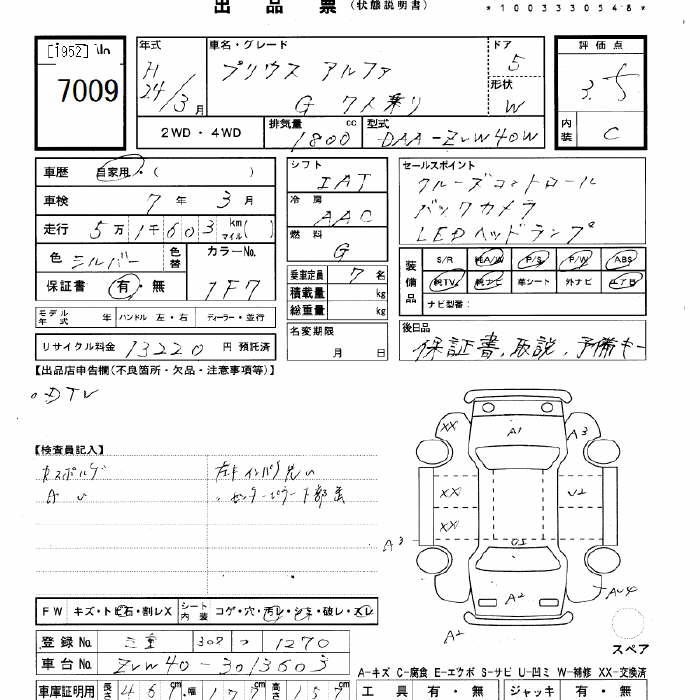 出品票(状態説明書)
*1003330548*
[1952]
7009
年式 H24/3月
車名・グレード プリウス アルファ
G 7人乗り
ドア 5
形状 W
評価点 3.5
内装 C
2WD・4WD
排気量 1800cc
型式 DAA-ZVW40W
車歴 自家用・( )
車検 7年3月
走行 5万1千603km マイル( )
色 シルバー 色替
カラーNo. 1F7
保証書 有・無
シフト IAT
冷房 AAC
燃料 G
乗車定員 7名
積載量 kg
総重量 kg
名変期限 月 日
セールスポイント
クルーズコントロール
バックカメラ
LEDヘッドランプ
装備品 S/R 純A/W P/S P/W ABS
純TV 純ナビ 革シート 外ナビ エアB
ナビ型番:
モデル年式 年 ハンドル 左・右 ディーラー・並行
リサイクル料金 13220円 預託済
後日品
保証書、取説、予備キー
【出品店申告欄(不良箇所・欠品・注意事項等)】
。DTV
【検査員記入】
XX A1 A3
XX U2
XX
A3
A2
A2
スペア
FW キズ・トビ石・割レX シート内装 コゲ・穴・汚レ・シミ・破レ・スレ
登録No. 三重 302 つ 1270
車台No. ZVW40-3013603
A-キズ C-腐食 E-エクボ S-サビ U-凹ミ W-補修 XX-交換済
車庫証明用 長さ 46 cm 幅 177cm 高さ 157cm
工具 有・無 ジャッキ 有・無